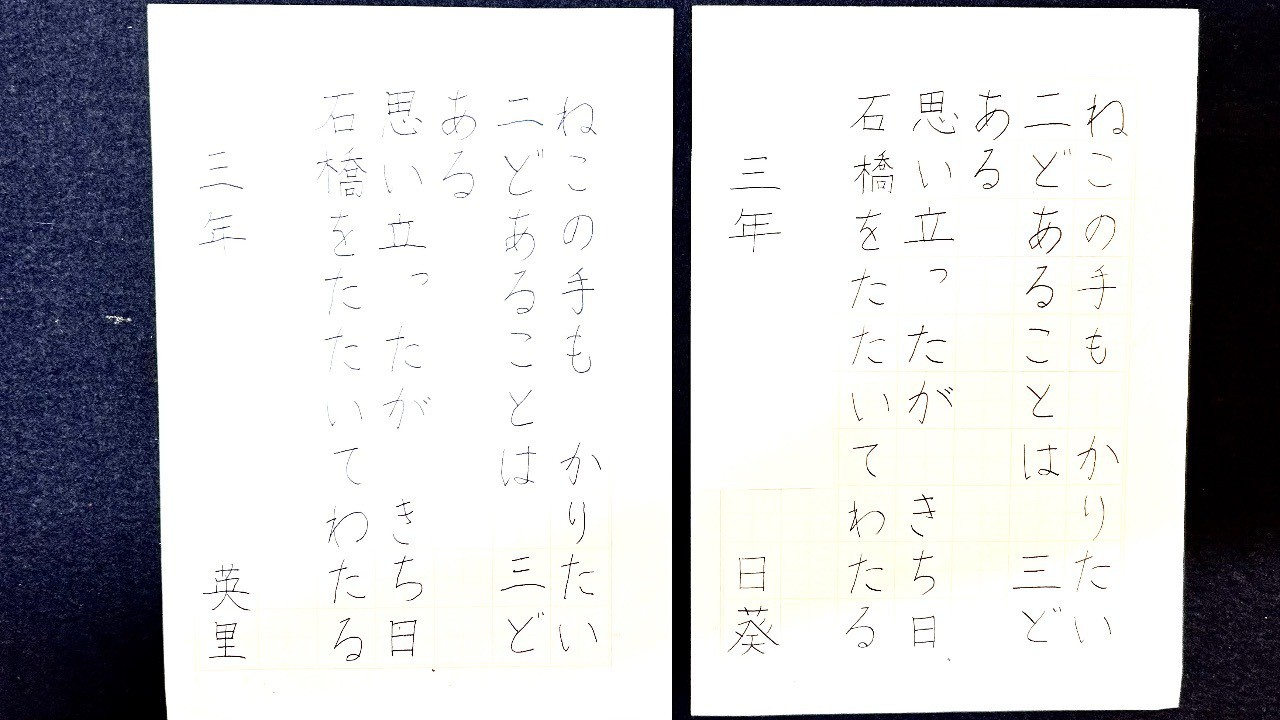 ねこの手も かりたい
二どあることは 三ど
ある
思い立ったが きち日
石橋をたたいてわたる
三年 英里
ねこの手も かりたい
二どあることは 三ど
ある
思い立ったが きち日
石橋をたたいてわたる
三年 日葵